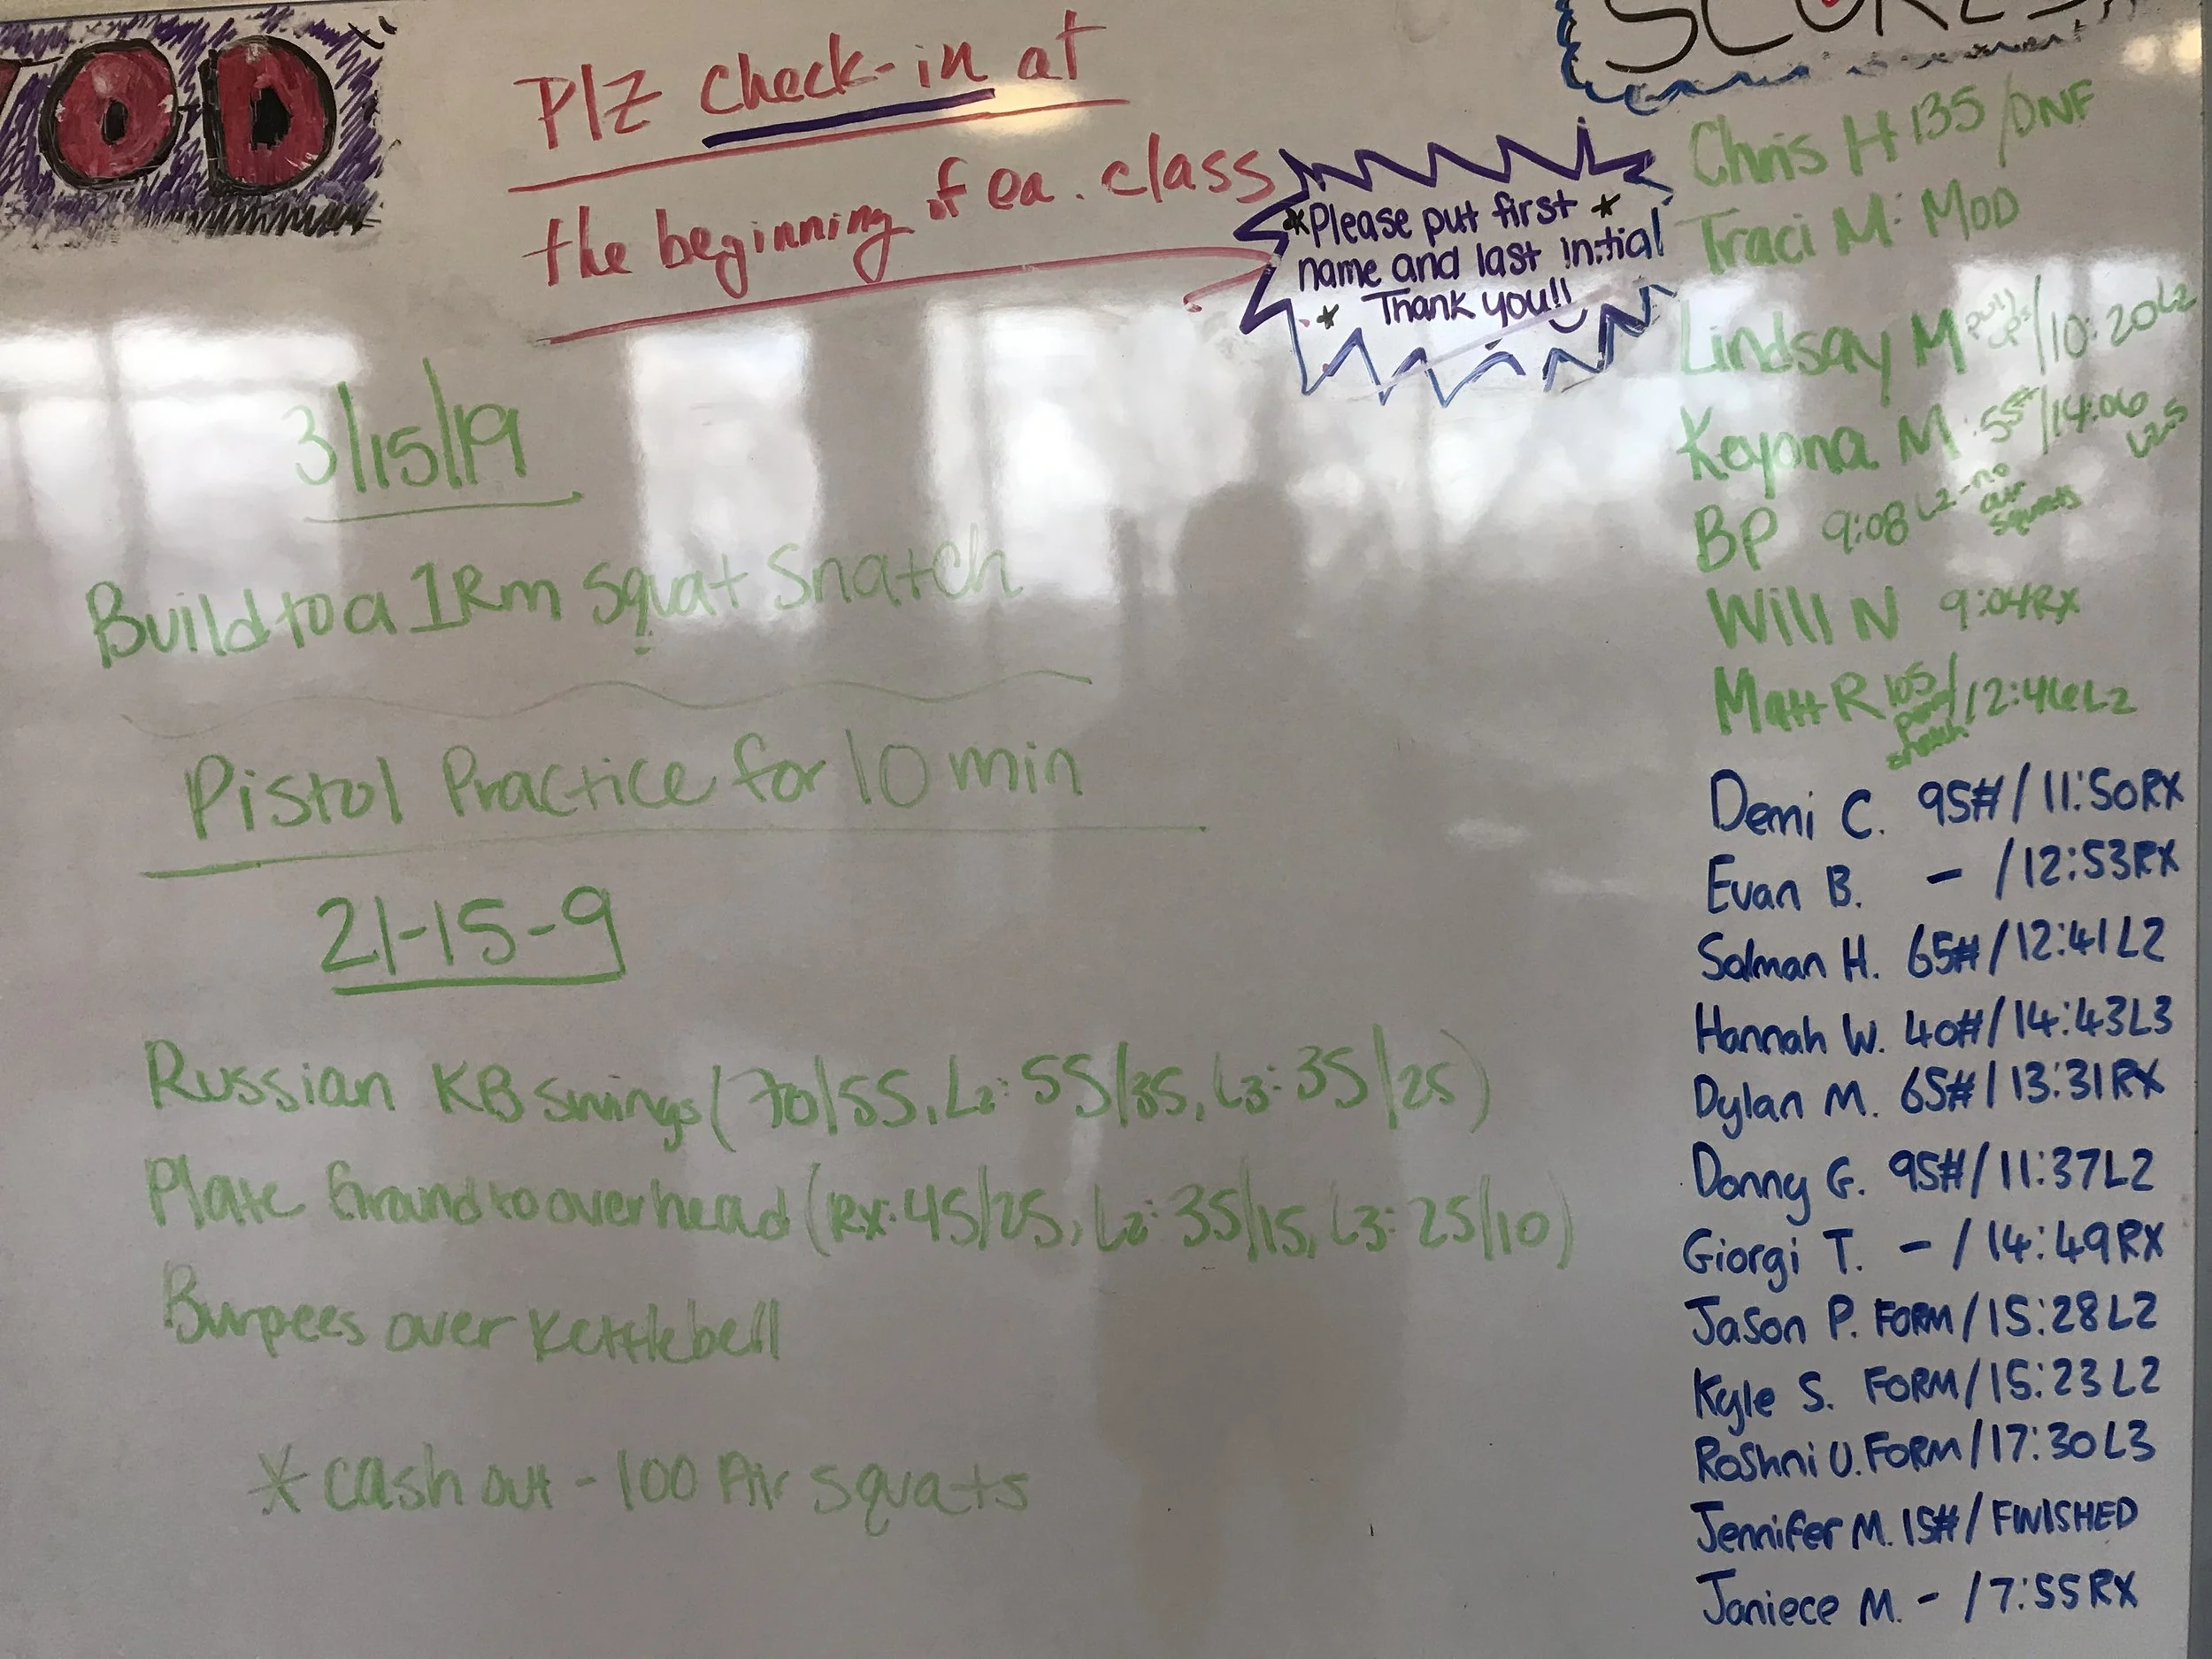 WOD
Plz check-in at
the beginning of ea. class
*Please put first *
name and last initial
* Thank you!!
3/15/19
Build to a 1Rm Squat Snatch
Pistol Practice for 10 min
21-15-9
Russian KB swings (70/55, L2: 55/35, L3: 35/25)
Plate Ground to overhead (RX: 45/25, L2: 35/15, L3: 25/10)
Burpees over Kettlebell
* cash out - 100 Air squats
SCORES
Chris H 135/DNF
Traci M: MOD
Lindsay M pull ups/10:20 L2
Keyona M 55#/14:06 L2.5
BP 9:08 L2 - no air squats
Will N 9:04 RX
Matt R 105 power snatch/12:46 L2
Demi C. 95#/11:50 RX
Evan B. - /12:53 RX
Salman H. 65#/12:41 L2
Hannah W. 40#/14:43 L3
Dylan M. 65#/13:31 RX
Donny G. 95#/11:37 L2
Giorgi T. - /14:49 RX
Jason P. FORM/15:28 L2
Kyle S. FORM/15:23 L2
Roshni U. FORM/17:30 L3
Jennifer M. 15#/FINISHED
Janiece M. - /7:55 RX